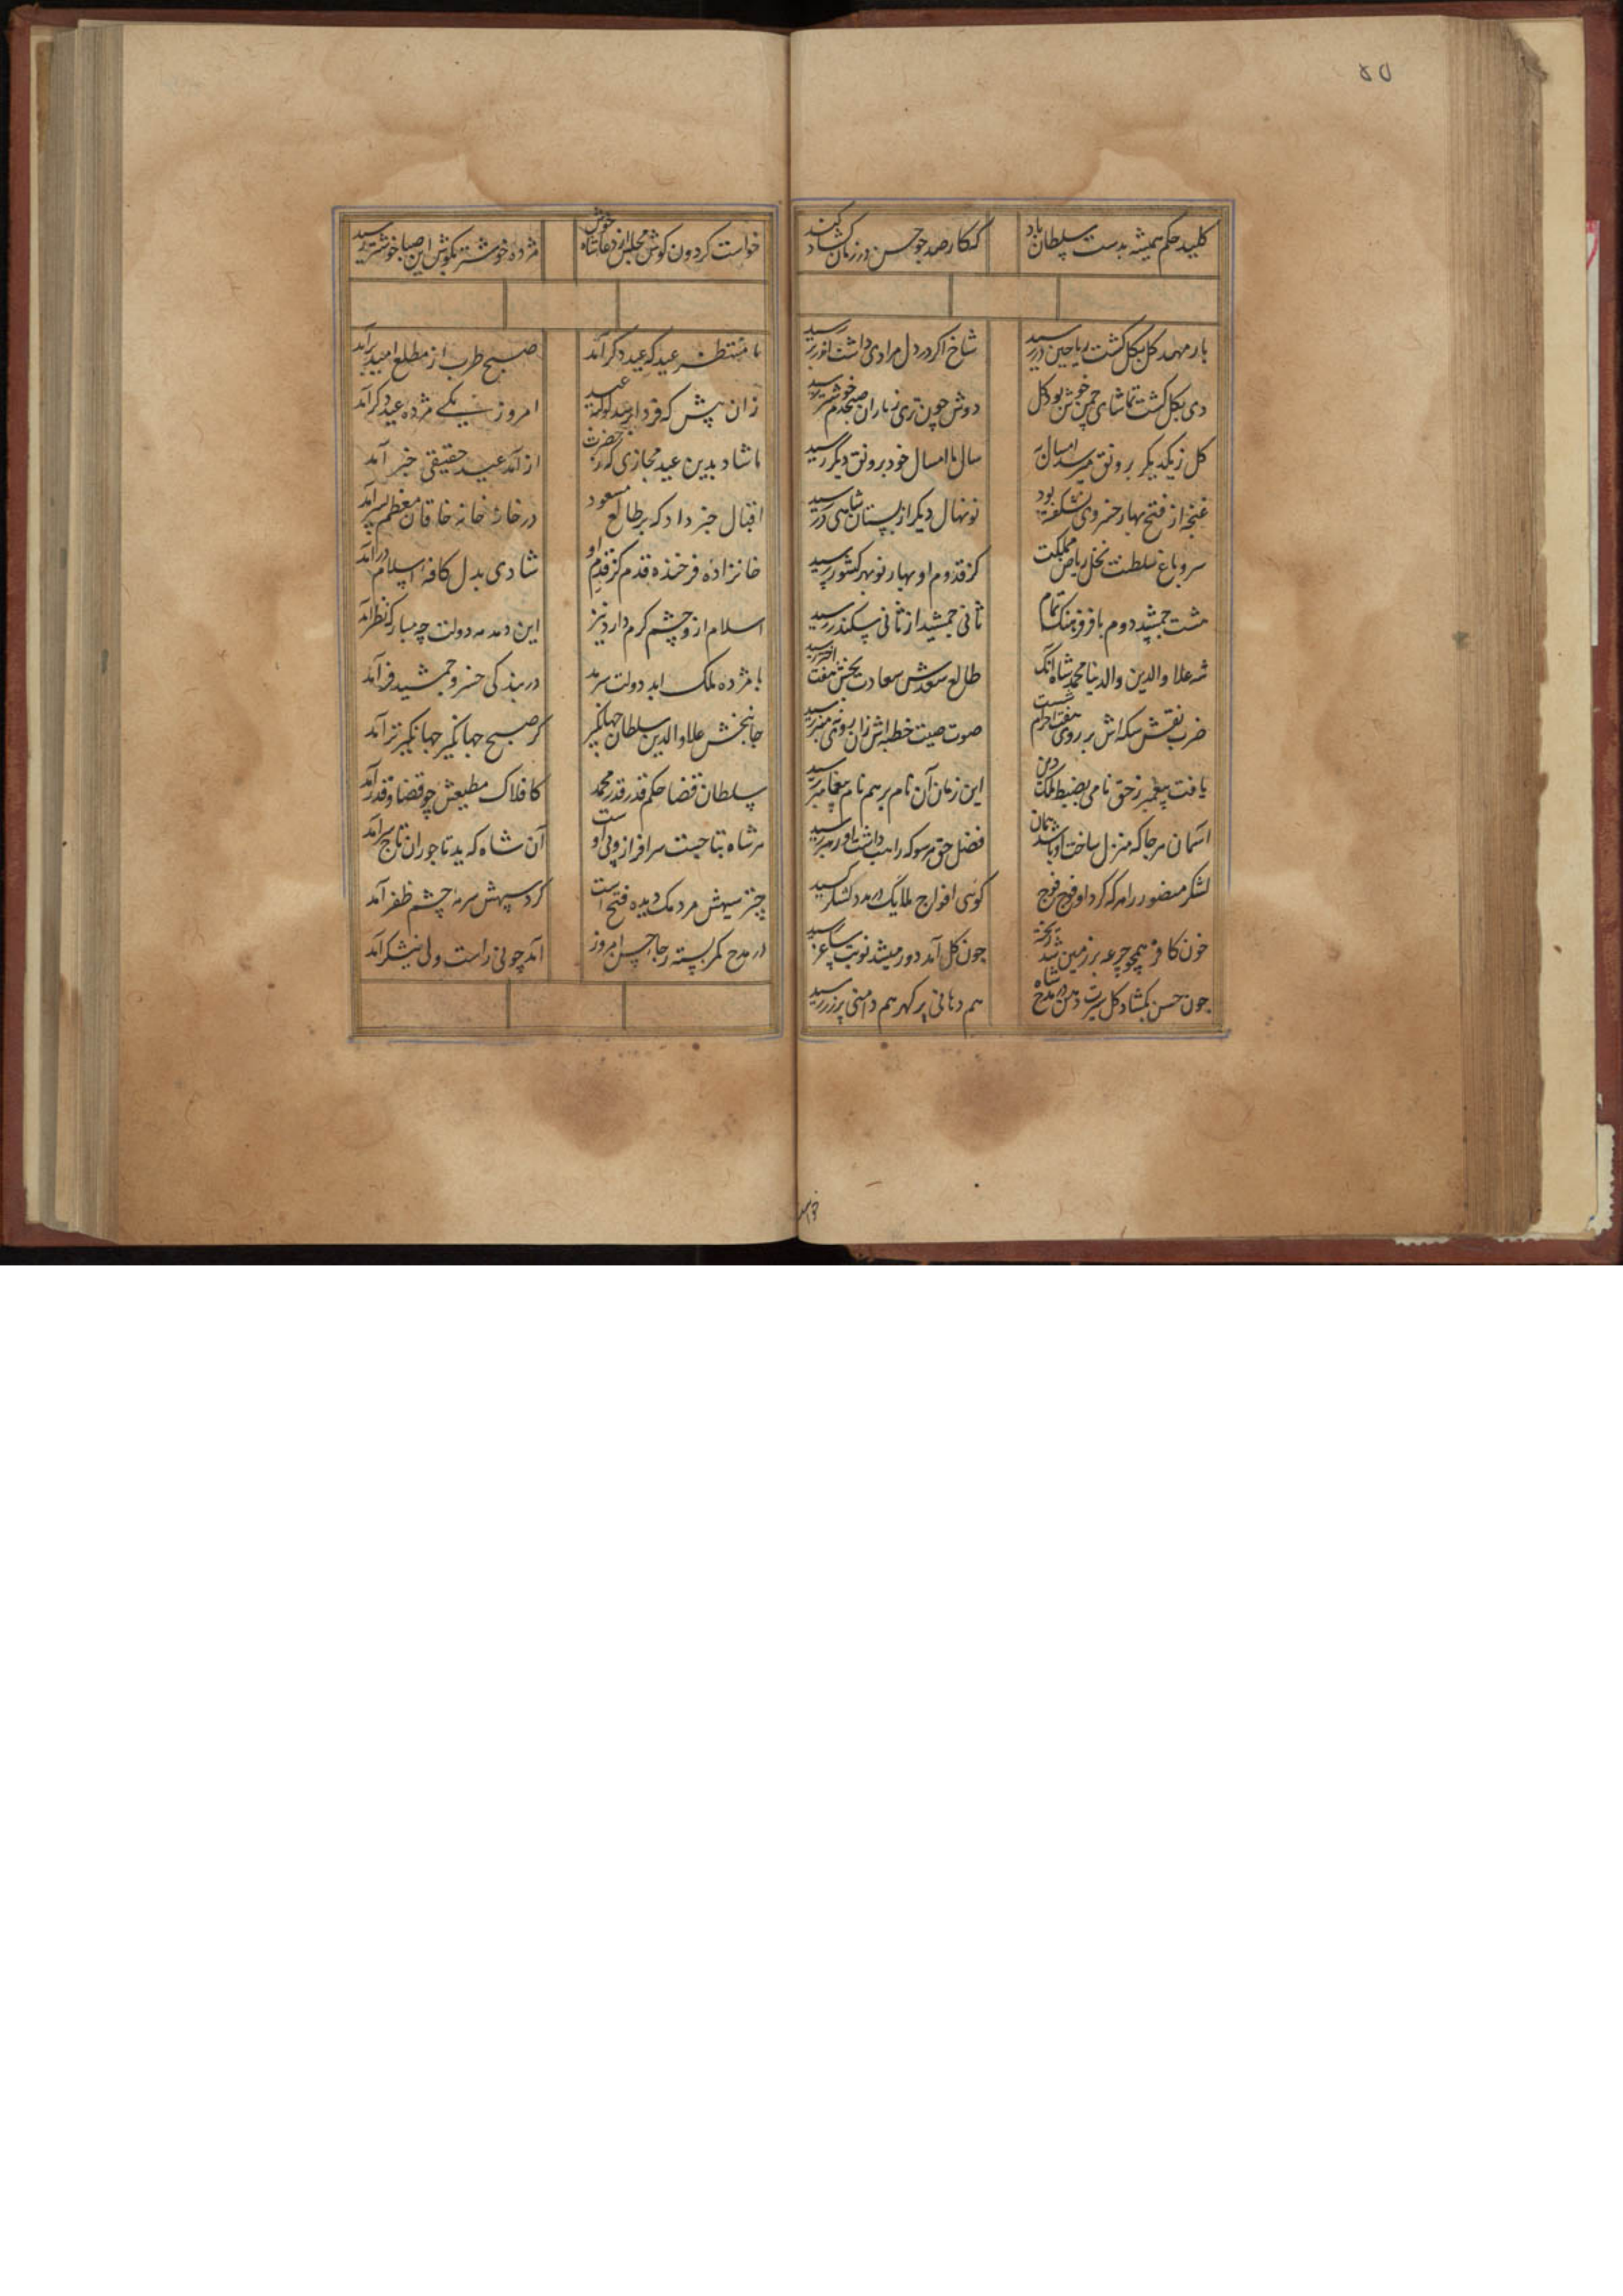 ۴۵
کلید حکم همیشه بدست سلطان باد
که کار صد چو حسن در زمان کشاد کند
بار مهد کل بکل کشت ریاحین در رسید
شاخ اکر در دل مرادی داشت
دی بکل کشت تماشای چمن خوش بود کل
دوش چون تری ز باران صبحدم خوشتر رسید
کل ز یکدیکر برونق میرسد امسال
سال ما امسال خود برونق دیکر رسید
غنچه از فتح بهار خسروی بشکفته بود
نونهال دیکر از بستان شاهی در رسید
سرو باغ سلطنت نخل ریاض مملکت
کز قدوم او بهار نو بهر کشور رسید
هست جمشید دوم با فر و هنک تمام
ثانی جمشید از ثانی سکندر رسید
شه علاء والدین والدنیا محمد شاه آنک
طالع سعدش سعادت بخش هفت اختر رسید
ضرب نقش سکه اش بر روی هفت
صوت صیت خطبه اش زان روی منبر رسید
یافت پیغمبر ز حق نامی بضبط ملک دین
این زمان آن نام بر هم نام پیغامبر رسید
آسمان هرجا که منزل ساخت او شد
فضل حق هر سو که رایت داشت او رهبر رسید
لشکر منصور را هر که کرد او فوج فوج
کوئی افواج ملایک در مدد لشکر رسید
خون کافر همچو جرعه بر زمین شد ریخته
چون کل آمد دور میشد نوبت ساغر رسید
چون حسن بکشاد کل سیرت دهن در مدح شاه
هم دهانی پر کهر هم دامنی پر زر رسید
خواست کردون کوش مجلس از دعا شاه خوش
مژده خوشتر بکوش این صبا خوشتر رسید
ما منتظر عید که عید دکر آمد
صبح طرب از مطلع امید برآمد
زان پیش که فردا رسد کوکبه عید
امروز یکی مژده عید دکر آمد
ما شاد بدین عید مجازی که ز حضرت
از آمد عید حقیقی خبر آمد
اقبال خبر داد که بر طالع مسعود
در خانه خاقان معظم پسر آمد
خانزاده فرخنده قدم کز قدم او
شادی بدل کافه اسلام درآمد
اسلام ازو چشم کرم دارد نیز
این دمدمه دولت چه مبارک نظر آمد
با مژده ملک ابد دولت سرمد
در بندکی خسرو جمشید فر آمد
جانبخش علاء والدین سلطان جهانکیر
کز صبح جهانکیر جهانکیرتر آمد
سلطان قضا حکم قدر قدر محمد
کافلاک مطیعش چو قضا و قدر آمد
هر شاه بتاجست سرافراز ولی او
آن شاه که بد تاجوران تاج سر آمد
چتر سیهش مردمک دیده فتح است
کرد سپهش سرمه چشم ظفر آمد
در مدح کمر بسته رجا حسن امروز
آمد چو نی راست ولی نیشکر آمد